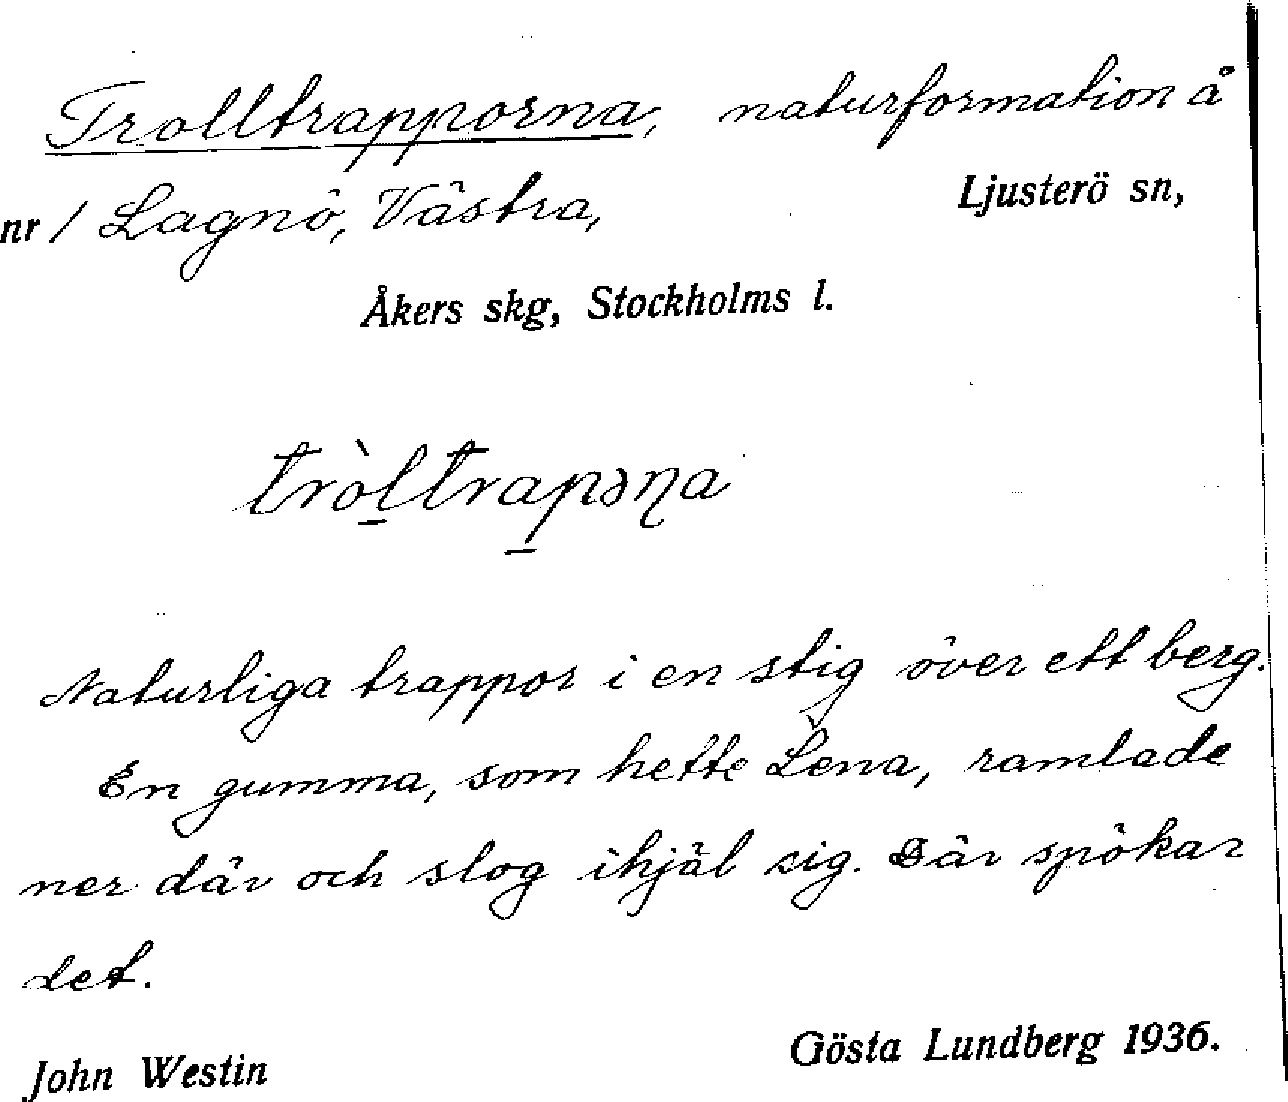 Trolltrapporna, naturformation å
nr 1 Lagnö, Västra, Ljusterö sn,
Åkers skg, Stockholms l.
tròltrapəɳa
Naturliga trappor i en stig över ett berg.
En gumma, som hette Lena, ramlade
ner där och slog ihjäl sig. Där spökar
det.
John Westin Gösta Lundberg 1936.